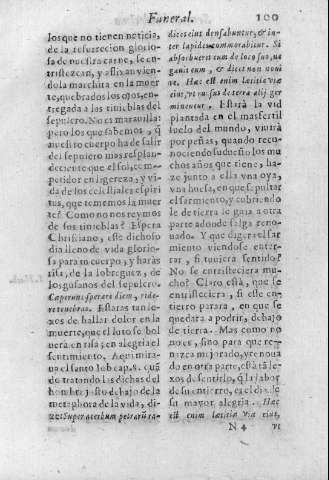 Funeral. 100
los que no tienen noticia,
de la resurreccion glorio-
sa de nuestra carne, se en-
tristezcan, y assi an vien-
dola marchita en la muer
te, quebrados los ojos, en-
tregada a las tinieblas del
sepulcro. No es marauilla:
pero los que sabemos, q̃
nuestro cuerpo ha de salir
del sepulcro mas resplan-
deciente que el sol, com-
petidor en ligereza, y vi-
da de los celestiales espiri
tus, que tememos la muer
te? Como no nos reymos
de sus tinieblas? Espera
Christiano, este dichoso
dia lleno de vida glorio-
sa para tu cuerpo, y haràs
risa, de la lobreguez, de
los gusanos del sepulcro.
Cœperunt sperare diem, ride-
re tenebras. Estaràs tan le-
xos de hallar dolor en la
muerte, que el luto se bol
uerà en risa; en alegria el
sentimiento. Aqui miraua
el santo Iob cap. 8. quã
do tratando las dichas del
hombre justo debajo de la
metaphora de la vida, di-
ze: Super aceruum petrarũ ra-
dices eius densabuntur, & in-
ter lapides commorabitur. Si
absorbuerit eum de loco suo, ne
gabit eum, & dicet non noui
te. Hæc est enim lætitia viæ
eius, vt rursus de terra alij ger
minentur. Estarà la vid
plantada en el mas fertil
suelo del mundo, viuirà
por peñas, quando reco-
nociendo su dueño los mu
chos años que tiene, ha-
ze junto a ella vna oya,
vna huesa, en que sepultar
el sarmiento, y cubriendo
le de tierra le guia a otra
parte adonde salga reno-
uado. Y que diger el sar
miento viendose enter-
rar, si tuuiera sentido?
No se entristeciera mu-
cho? Claro està, que se
entristeciera, si este en-
tierro parara, en que se
quedara a podrir, debajo
de tierra. Mas como no
es, sino para que re-
nazca mejorado, y renoua
do en otra parte, està tã le-
xos de sentirlo, q̃ la labor
de su entierro, es el dia de
su mayor alegria. Hæc
est enim lætitia viæ eius,
N 4 vt